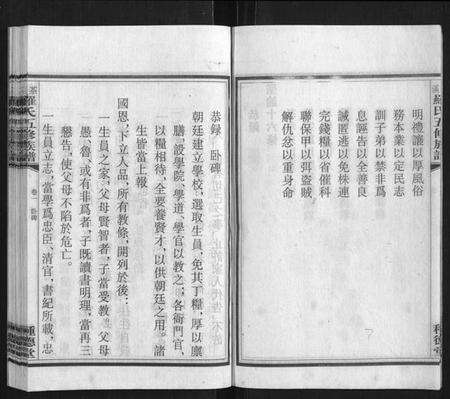 羅氏五修族譜
種德堂
明禮讓以厚風俗
務本業以定民志
訓子弟以禁非爲
息誣告以全善良
誡匿逃以免株連
完錢糧以省催科
聯保甲以弭盜賊
解仇忿以重身命
恭録 卧碑
朝廷建立學校,選取生員,免其丁糧,厚以廩
膳,設學院、學道、學官以教之;各衙門官,
以禮相待,全要養賢才,以供朝廷之用。諸
生皆當上報
國恩,下立人品,所有教條,開列於後:
一生員之家,父母賢智者,子當受教,父母
愚魯,或有非爲者,子既讀書明理,當再三
懇告,使父母不陷於危亡。
一生員立志,當學爲忠臣、清官,書紀所載,忠
羅氏五修族譜
卷 卧碑
種德堂